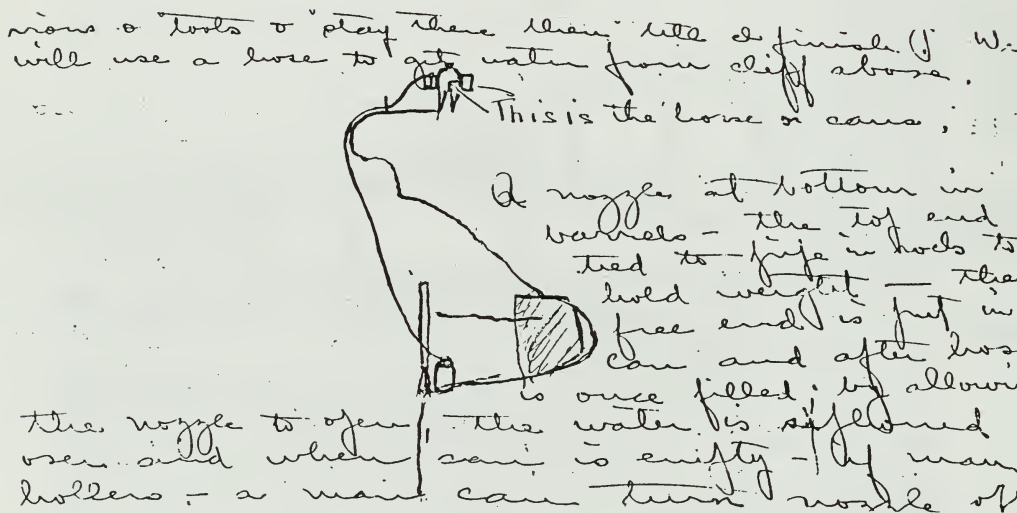 visions & tools & stay there then till I finish. (We
will use a hose to get water from cliff above.
This is the horse or cans.
A nozzle at bottom in
barrels - the top end
tied to pipe in rocks to
hold weight - the
free end is put in
can and after hos
is once filled; by allowi
the nozzle to open the water is siffloned
over and when can is emifty - if man
hollers - a man can turn nozzle off